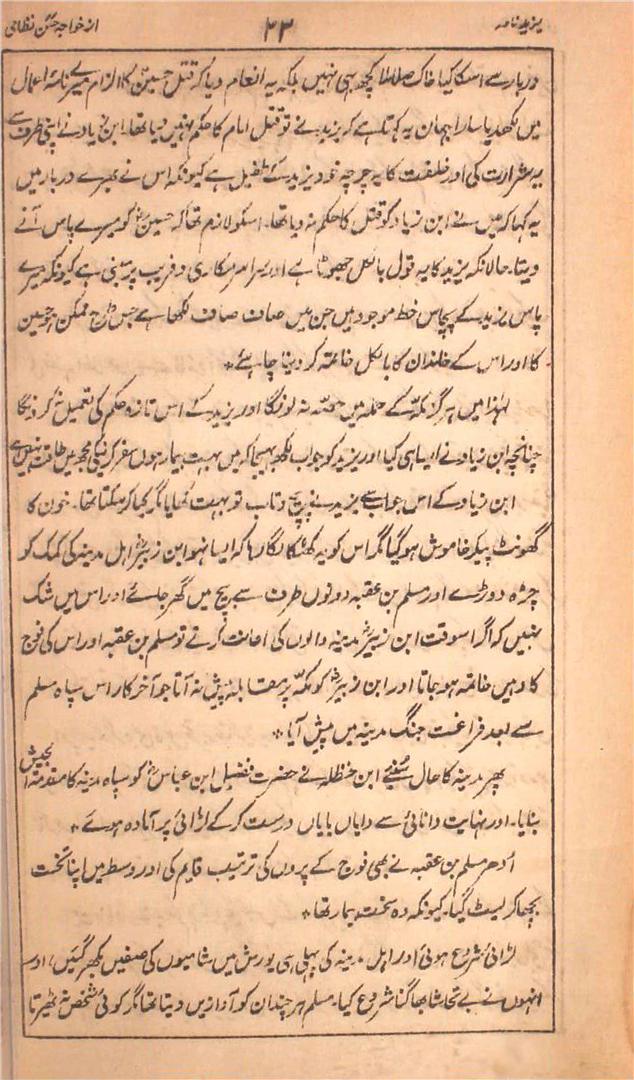 یزید نامہ ۲۳ از خواجہ حسن نظامی
دربار سے اسکا کیا خاک صلہ ملا کچھ بھی نہیں بلکہ یہ انعام دیا کہ قتل حسینؓ کا الزام میرے نامۂ اعمال
میں لکھدیا سارا جہان یہ کہتا ہے کہ یزید نے تو قتل امام کا حکم نہیں دیا تھا۔ ابن زیاد نے اپنی طرف سے
یہ شرارت کی اور خلقت کا یہ چرچہ خود یزید کے طفیل ہے کیونکہ اس نے بھرے دربار میں
یہ کہا کہ میں نے ابن زیاد کو قتل کا حکم نہ دیا تھا۔ اسکو لازم تھا کہ حسینؓ کو میرے پاس آنے
دیتا۔ حالانکہ یزید کا یہ قول بالکل جھوٹا ہے اور سراسر مکاری و فریب پر مبنی ہے کیونکہ میرے
پاس یزید کے پچاس خط موجود ہیں جن میں صاف صاف لکھا ہے جس طرح ممکن ہو حسین
کا اور اس کے خاندان کا بالکل خاتمہ کر دینا چاہئے ٭
لہٰذا میں ہرگز مکّہ کے حملہ میں حصّہ نہ لونگا اور یزید کے اس تازہ حکم کی تعمیل نہ کرونگا
چنانچہ ابن زیاد نے ایسا ہی کیا اور یزید کو جواب لکھ بھیجا کہ میں بہت بیمار ہوں سفر کرنیکی مجھ میں طاقت نہیں ہے
ابن زیاد کے اس جواب سے یزید نے پیچ و تاب تو بہت کھایا مگر کیا کر سکتا تھا۔ خون کا
گھونٹ پیکر خاموش ہو گیا مگر اس کو یہ کھٹکا لگا رہا کہ ایسا نہو ابن زبیرؓ اہل مدینہ کی کمک کو
چڑہ دوڑے اور مسلم بن عقبہ دونوں طرف سے بیچ میں گھر جائے اور اس میں شک
نہیں کہ اگر اسوقت ابن زبیرؓ مدینہ والوں کی اعانت کرتے تو مسلم بن عقبہ اور اس کی فوج
کا وہیں خاتمہ ہو جاتا اور ابن زبیرؓ کو مکّہ پر مقابلہ پیش نہ آتا جو آخرکار اس سپاہ مسلم
سے بعد فراغت جنگ مدینہ میں پیش آیا ٭
پھر مدینہ کا حال سنئے ابن حنظلہ نے حضرت فضیل ابن عباسؓ کو سپاہ مدینہ کا مقدمۃ الجیش
بنایا۔ اور نہایت دانائی سے دایاں بایاں درست کر کے لڑائی پر آمادہ ہوئے ٭
اُدھر مسلم بن عقبہ نے بھی فوج کے پروں کی ترتیب قایم کی اور وسط میں اپنا تخت
بچھا کر لیٹ گیا۔ کیونکہ وہ سخت بیمار تھا ٭
لڑائی شروع ہوئی اور اہل مدینہ کی پہلی ہی یورش میں شامیوں کی صفیں بکھر گئیں، اور
انہوں نے بے تحاشا بھاگنا شروع کیا۔ مسلم ہر چند ان کو آوازیں دیتا تھا مگر کوئی شخص نہ ٹھیرتا